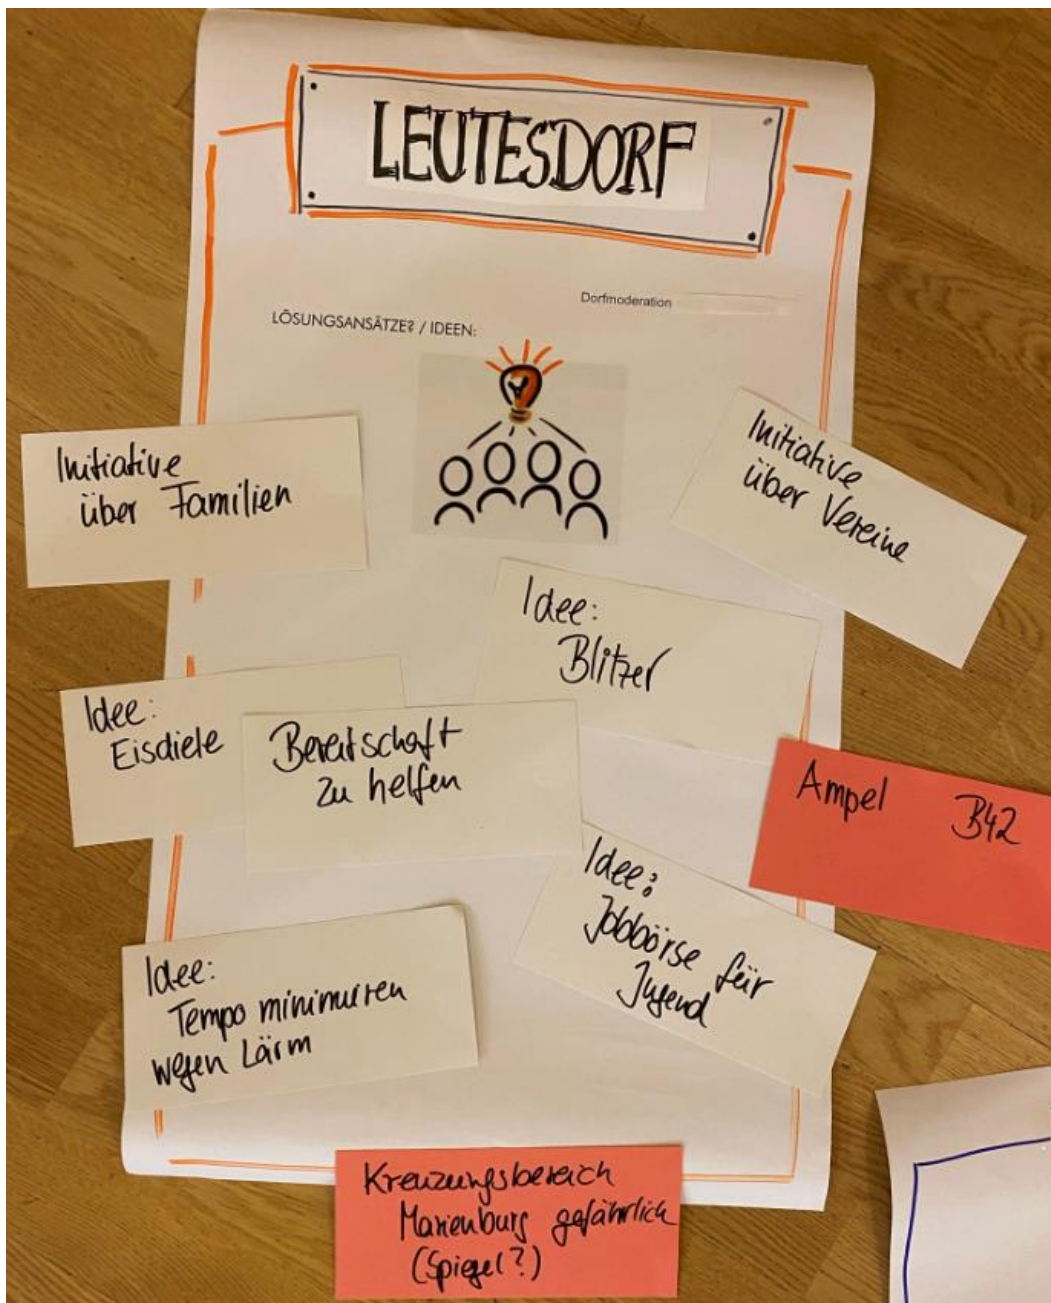 LEUTESDORF
Dorfmoderation
LÖSUNGSANSÄTZE? / IDEEN:
Initiative
über Familien
Initiative
über Vereine
Idee:
Blitzer
Idee:
Eisdiele
Bereitschaft
zu helfen
Ampel B42
Idee:
Jobbörse für
Jugend
Idee:
Tempo minimieren
wegen Lärm
Kreuzungsbereich
Marienburg gefährlich
(Spiegel?)